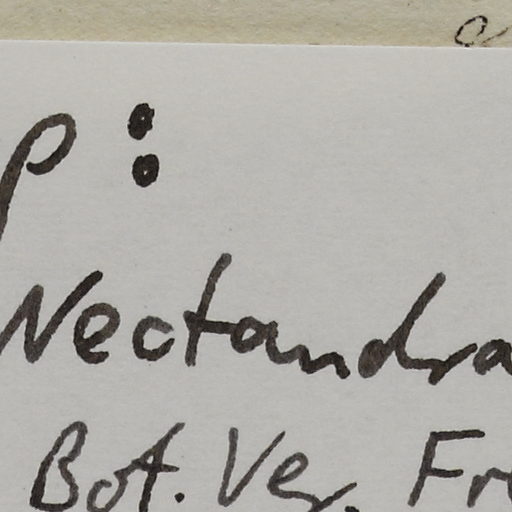 p:
Nectandra
Bot. Ver. Fr